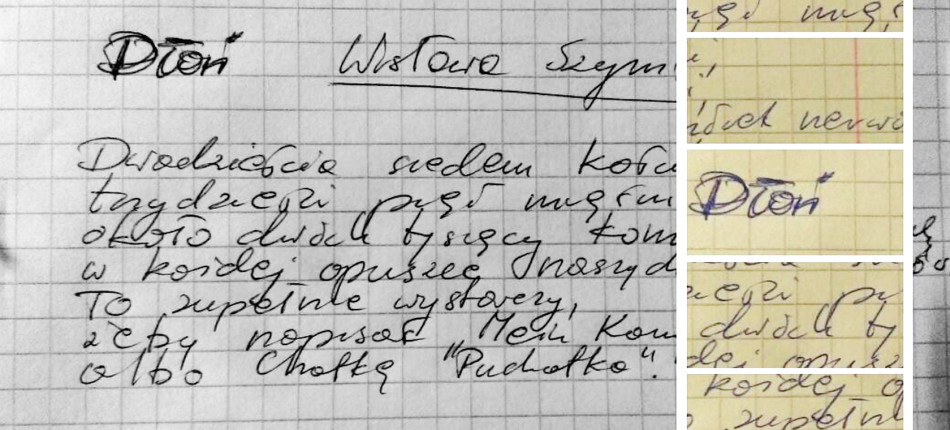 Dłoń Wisława Szym
Dwadzieścia siedem kośc
trzydzieści pięć mięśn
około dwóch tysięcy kom
w każdej opuszce naszyc
To zupełnie wystarczy,
żeby napisać "Mein Kam
albo Chatkę "Puchatka".
Dłoń
dwóch ty
dej opusz
każdej o
zupełn